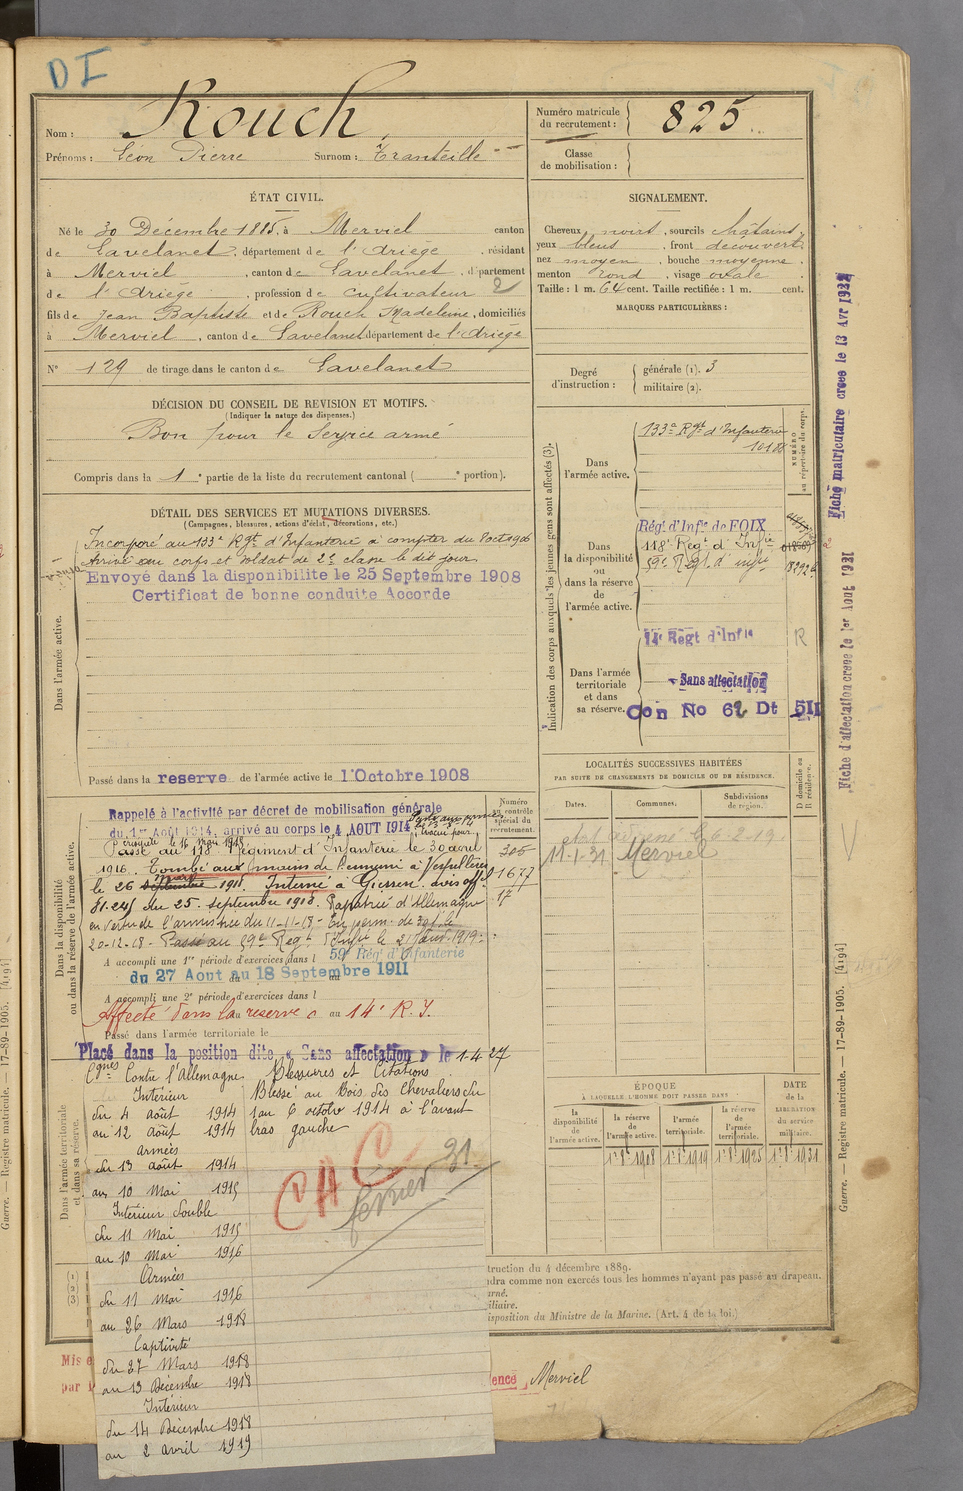 DI
Nom : Rouch
Prénoms : Léon Pierre Surnom : Tranteille
Numéro matricule du recrutement : 825
Classe de mobilisation :
ÉTAT CIVIL.
Né le 30 Décembre 1885, à Merviel canton
de Lavelanet, département de l'Ariège, résidant
à Merviel, canton de Lavelanet, département
de l'Ariège, profession de cultivateur 2
fils de Jean Baptiste et de Rouch Madeleine, domiciliés
à Merviel, canton de Lavelanet département de l'Ariège
N° 129 de tirage dans le canton de Lavelanet
SIGNALEMENT.
Cheveux noirs, sourcils châtains,
yeux bleus, front découvert,
nez moyen, bouche moyenne,
menton rond, visage ovale
Taille : 1 m. 64 cent. Taille rectifiée : 1 m. cent.
MARQUES PARTICULIÈRES :
Degré d'instruction : générale (1). 3
militaire (2).
DÉCISION DU CONSEIL DE REVISION ET MOTIFS.
(Indiquer la nature des dispenses.)
Bon pour le Service armé
Compris dans la 1e partie de la liste du recrutement cantonal ( e portion).
DÉTAIL DES SERVICES ET MUTATIONS DIVERSES.
(Campagnes, blessures, actions d'éclat, décorations, etc.)
Incorporé au 133e Rgt d'Infanterie à compter du 8 oct 1906
Arrivé au corps et soldat de 2e classe le dit jour
Envoyé dans la disponibilite le 25 Septembre 1908
Certificat de bonne conduite Accorde
Dans l'armée active.
Passé dans la reserve de l'armée active le 1 Octobre 1908
Indication des corps auxquels les jeunes gens sont affectés (3).
NUMÉRO au répertoire du corps.
Dans l'armée active.
133e Rgt d'Infanterie
10188
Dans la disponibilité ou dans la réserve de l'armée active.
Rég. d'Infie de FOIX
118e Régt d'Infie
59e Régt d'infie
18292
Dans l'armée territoriale et dans sa réserve.
14e Regt d'Infie R
Sans affectation
Con No 62 Dt 511
Dans la disponibilité ou dans la réserve de l'armée active.
Numéro au contrôle spécial du recrutement.
Rappelé à l'activité par décret de mobilisation générale
du 1er Août 1914, arrivé au corps le 4 AOUT 1914
Passé au 118e Régiment d'Infanterie le 30 avril
1916. Tombé aux mains de l'ennemi à
le 26 septembre mars 1918. Interné à Giessen. avis offel
81.245 du 25 septembre 1918. Rapatrié d'Allemagne
en vertu de l'armistice du 11-11-18 - En perm. de 30 j. le
20-12-18 - Passé au 59e Regt d'Infie le 21 Janv. 1919.
305
1677
17
A accompli une 1re période d'exercices dans l 59 Rég. d'Infanterie
du 27 Aout au 18 Septembre 1911
A accompli une 2e période d'exercices dans l
Affecté dans la reserve au 14e R.I.
Passé dans l'armée territoriale le
Placé dans la position dite « Sans affectation » le 1-4-27
LOCALITÉS SUCCESSIVES HABITÉES
PAR SUITE DE CHANGEMENTS DE DOMICILE OU DE RÉSIDENCE.
Dates. Communes. Subdivisions de région. D domicile ou R résidence.
6-2-19
11-1-31 Merviel
ÉPOQUE
À LAQUELLE L'HOMME DOIT PASSER DANS
DATE de la LIBÉRATION du service militaire.
la disponibilité de l'armée active. la réserve de l'armée active. l'armée territoriale. la réserve de l'armée territoriale.
1 8 1908 1 8 1919 1 8 1925 1 8 1931
Dans l'armée territoriale et dans sa réserve.
Cgnes Contre l'Allemagne
Intérieur
du 4 août 1914
au 12 août 1914
Armées
du 13 août 1914
au 10 Mai 1915
Intérieur double
du 11 Mai 1915
au 10 Mai 1916
Armées
du 11 Mai 1916
au 26 Mars 1918
Captivité
du 27 Mars 1918
au 13 Décembre 1918
Intérieur
du 14 Décembre 1918
au 2 avril 1919
Blessures et Citations
Blessé au Bois des Chevaliers du
1 au 6 octobre 1914 à l'avant
bras gauche
CAC
février 31
(1)
(2)
(3)
truction du 4 décembre 1889.
dra comme non exercés tous les hommes n'ayant pas passé au drapeau.
rné.
iliaire.
isposition du Ministre de la Marine. (Art. 4 de la loi.)
Mis e
par
ence Merviel
Fiche matriculaire creee le 13 Avr 1932
Fiche d'affectation creee le 1er Aout 1931
Guerre. — Registre matricule. — 17-89-1905. [4194]
Guerre. — Registre matricule. — 17-89-1905. [4194]